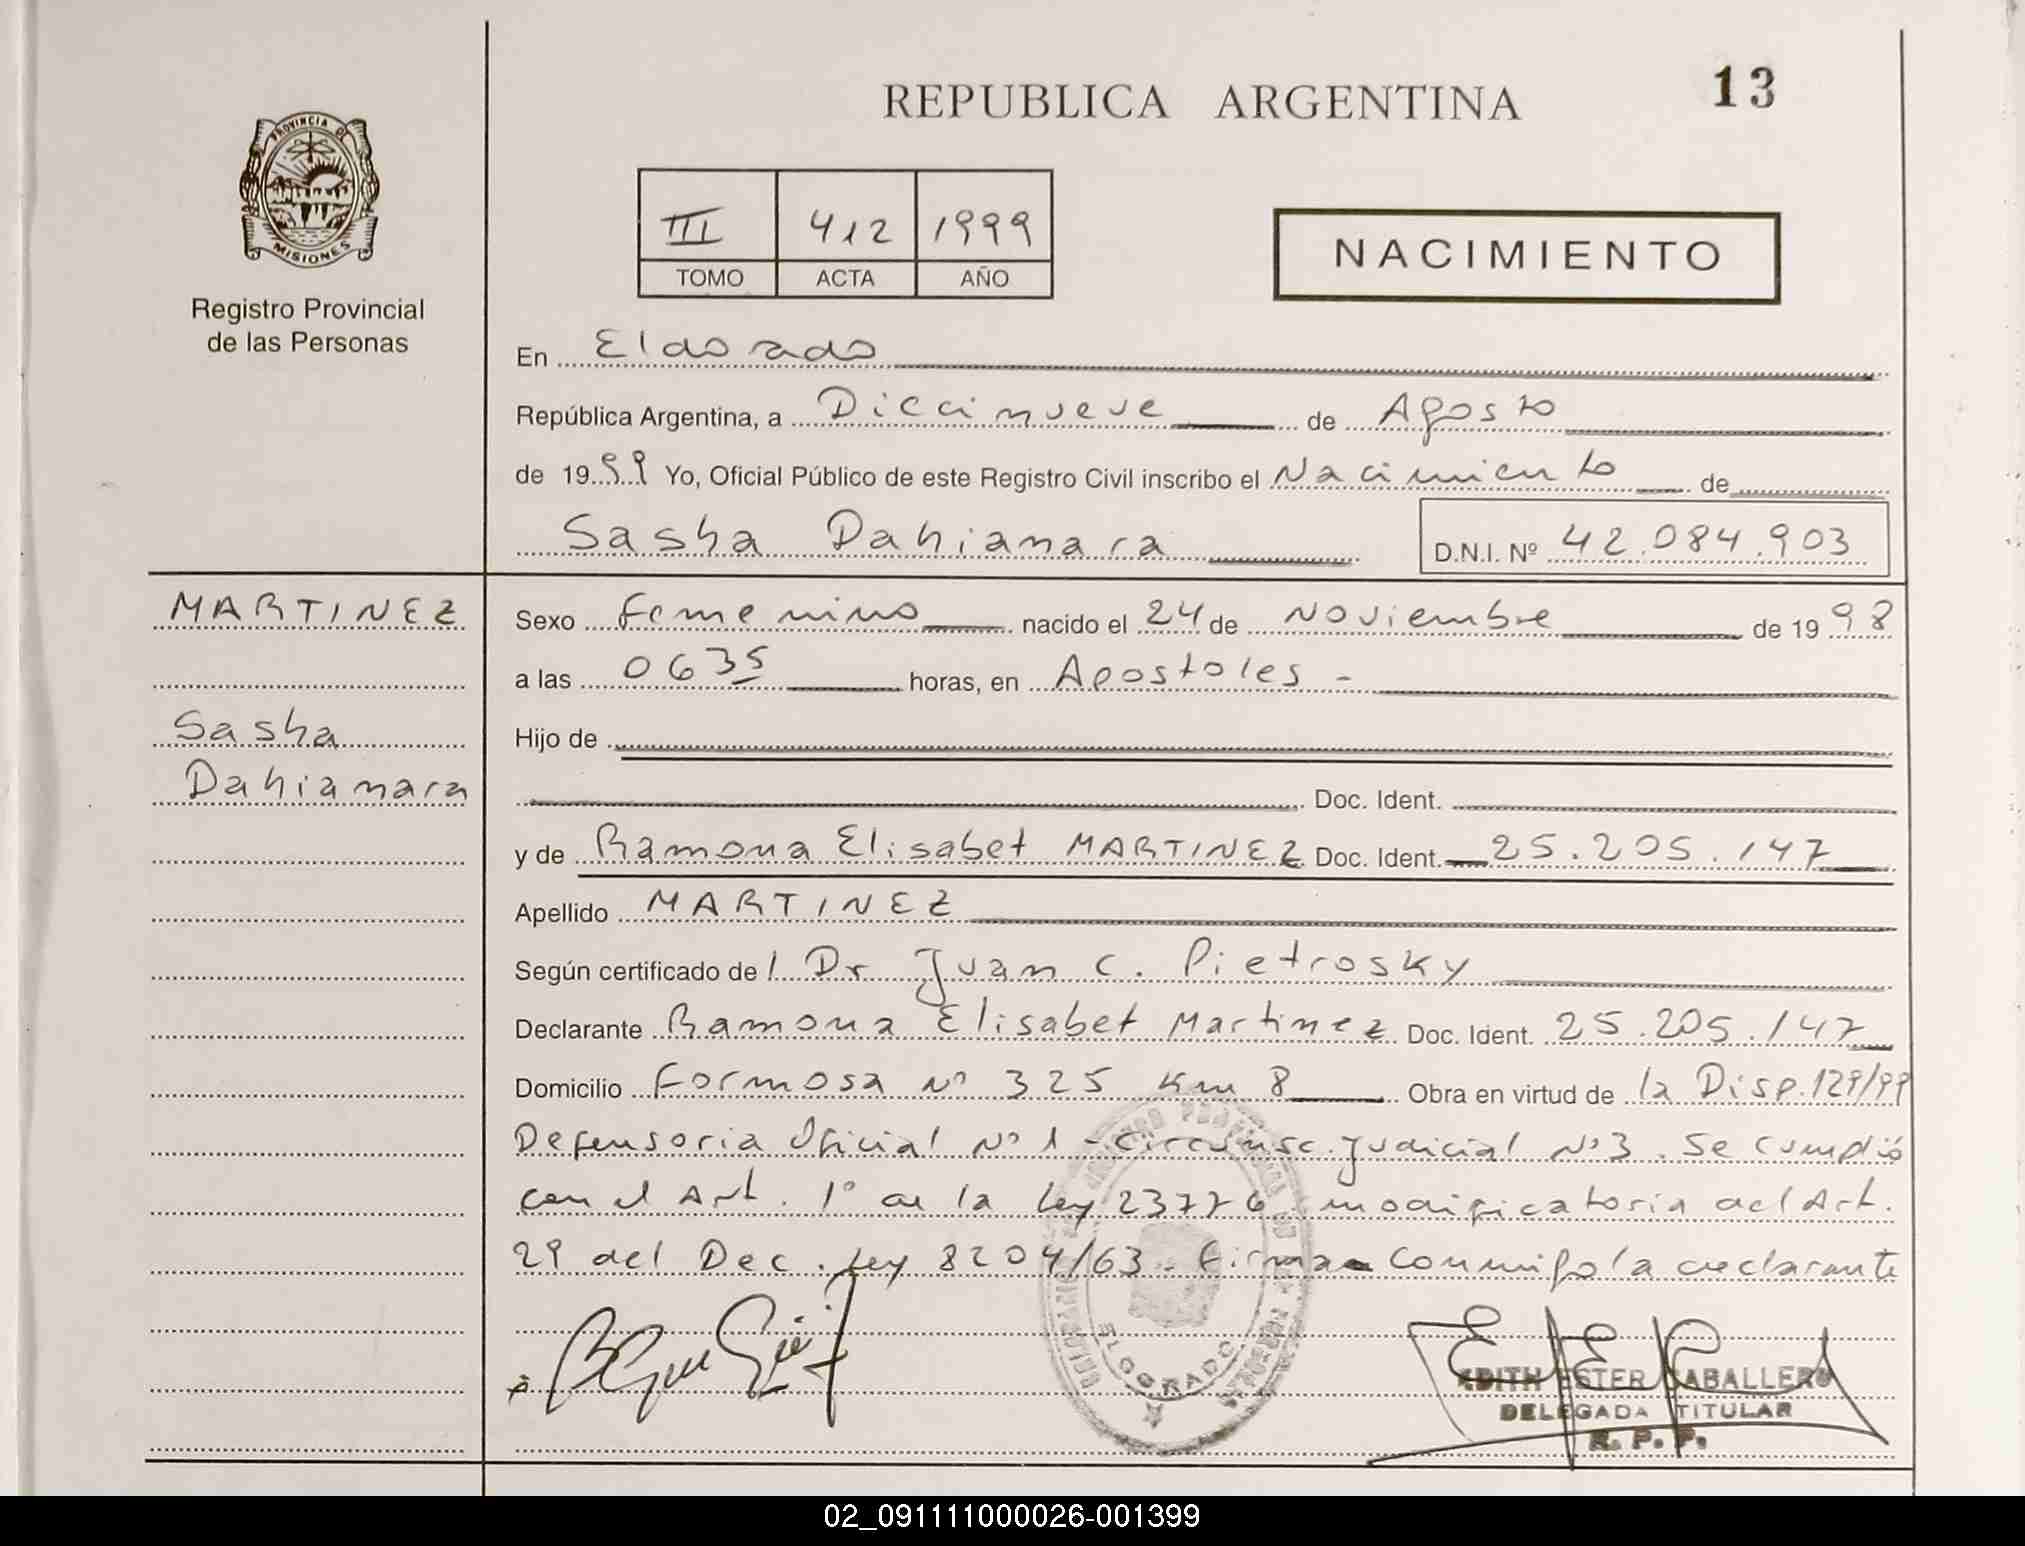 REPUBLICA ARGENTINA
13
PROVINCIA DE
MISIONES
Registro Provincial
de las Personas
III 412 1999
TOMO ACTA AÑO
NACIMIENTO
En Eldorado
República Argentina, a Diecinueve de Agosto
de 1999 Yo, Oficial Público de este Registro Civil inscribo el Nacimiento de
Sasha Dahiamara D.N.I. Nº 42.084.903
MARTINEZ
Sasha
Dahiamara
Sexo Femenino nacido el 24 de Noviembre de 1998
a las 0635 horas, en Apostoles -
Hijo de
Doc. Ident.
y de Ramona Elisabet MARTINEZ Doc. Ident. 25.205.147
Apellido MARTINEZ
Según certificado de l Dr Juan C. Pietrosky
Declarante Ramona Elisabet Martinez Doc. Ident. 25.205.147
Domicilio Formosa Nº 325 Km 8 Obra en virtud de la Disp. 129/99
Defensoria Oficial Nº 1 - Circunsc. Judicial Nº 3. Se cumplió
con el Art. 1º de la Ley 23776 modificatoria del Art.
29 del Dec. Ley 8204/63. Firma conmigo la declarante
ELDORADO
EDITH ESTER CABALLERO
DELEGADA TITULAR
R. P. P.
02_091111000026-001399